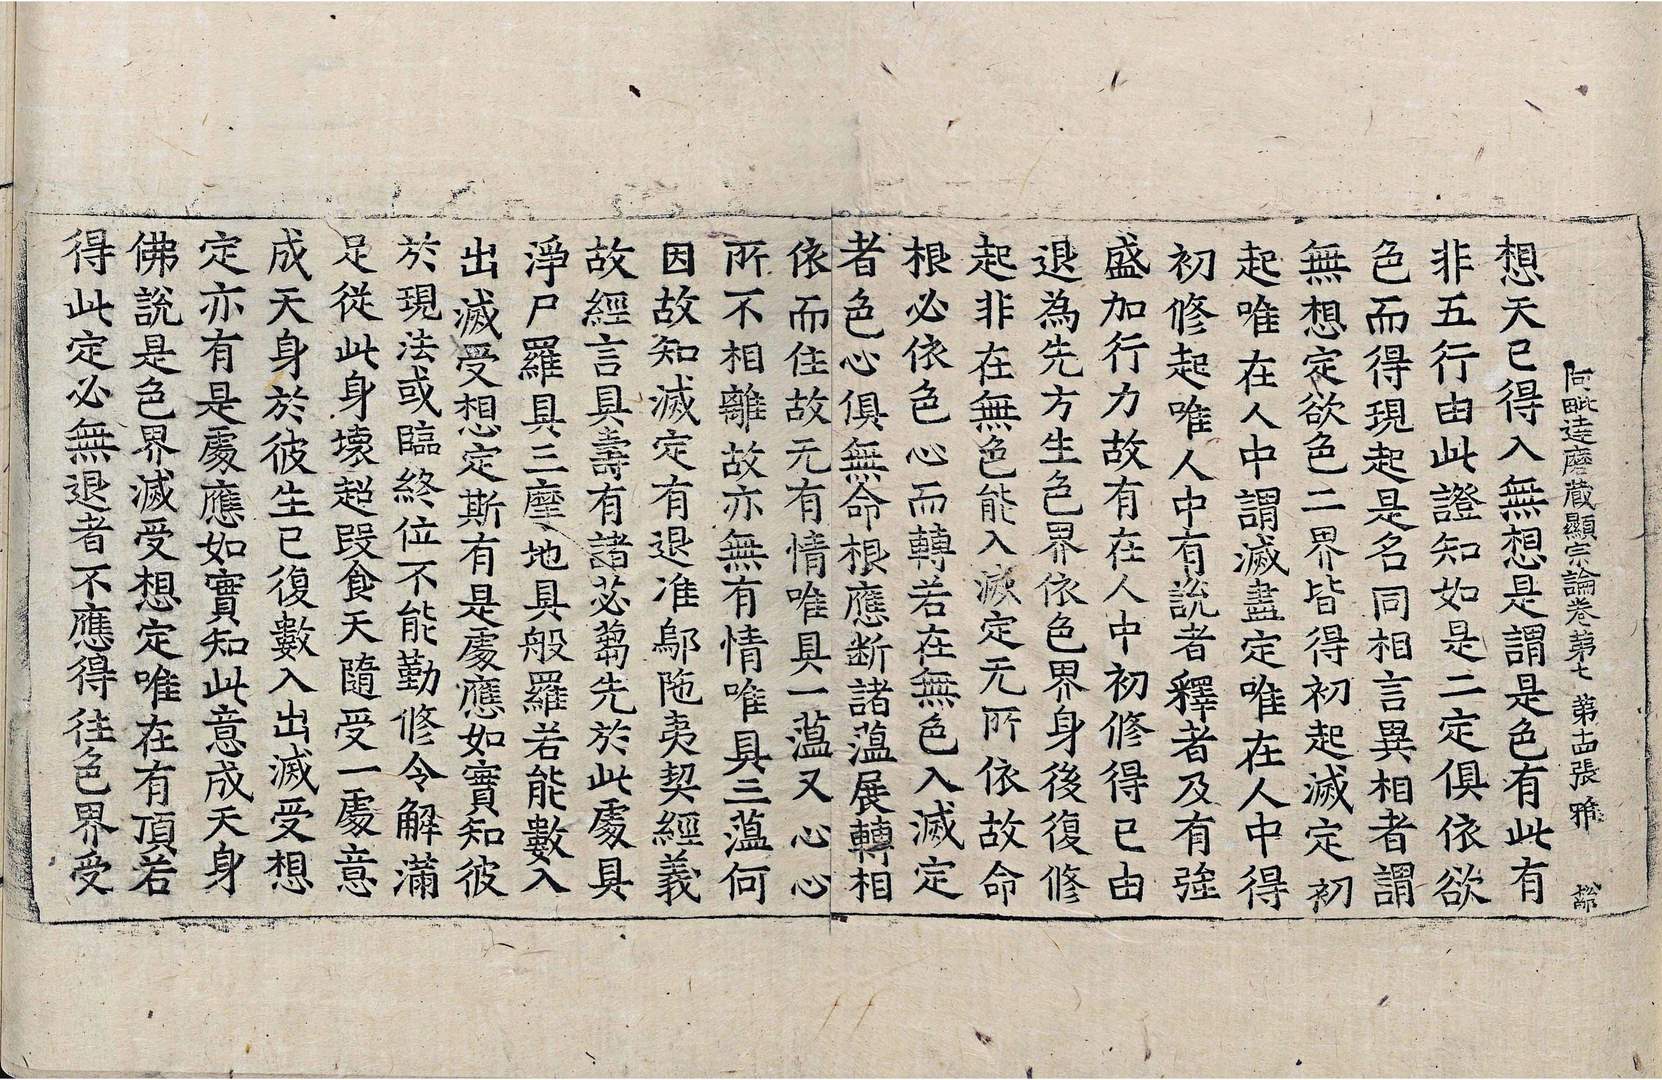 阿毗達磨藏顯宗論卷第七　第十四張　雅
想天已得入無想是謂是色有此有
非五行由此證知如是二定俱依欲
色而得現起是名同相言異相者謂
無想定欲色二界皆得初起滅定初
起唯在人中謂滅盡定唯在人中得
初修起唯人中有說者釋者及有強
盛加行力故有在人中初修得已由
退為先方生色界依色界身後復修
起非在無色能入滅定无所依故命
根必依色心而轉若在無色入滅定
者色心俱無命根應断諸蕰展轉相
依而住故无有情唯具一蕰又心心
所不相離故亦無有情唯具三蕰何
因故知滅定有退准鄔陁夷契經義
故經言具壽有諸苾蒭先於此處具
淨尸羅具三摩地具般羅若能數入
出滅受想定斯有是處應如實知彼
於現法或臨終位不能勤修令解滿
足從此身壞超段食天隨受一處意
成天身於彼生已復數入出滅受想
定亦有是處應如實知此意成天身
佛說是色界滅受想定唯在有頂若
得此定必無退者不應得往色界受